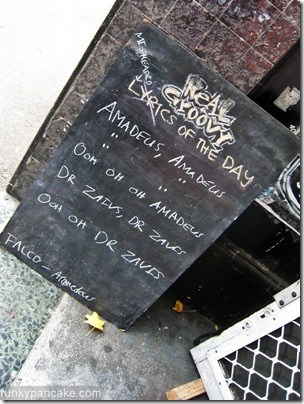 MISHEARD
REAL
GROOVY
LYRICS OF THE DAY
AMADEUS, AMADEUS
" "
OOH OH OH AMADEUS
DR ZAIUS, DR ZAIUS
OOH OH DR ZAUIS
FALCO - Amadeus
funkypancake.com